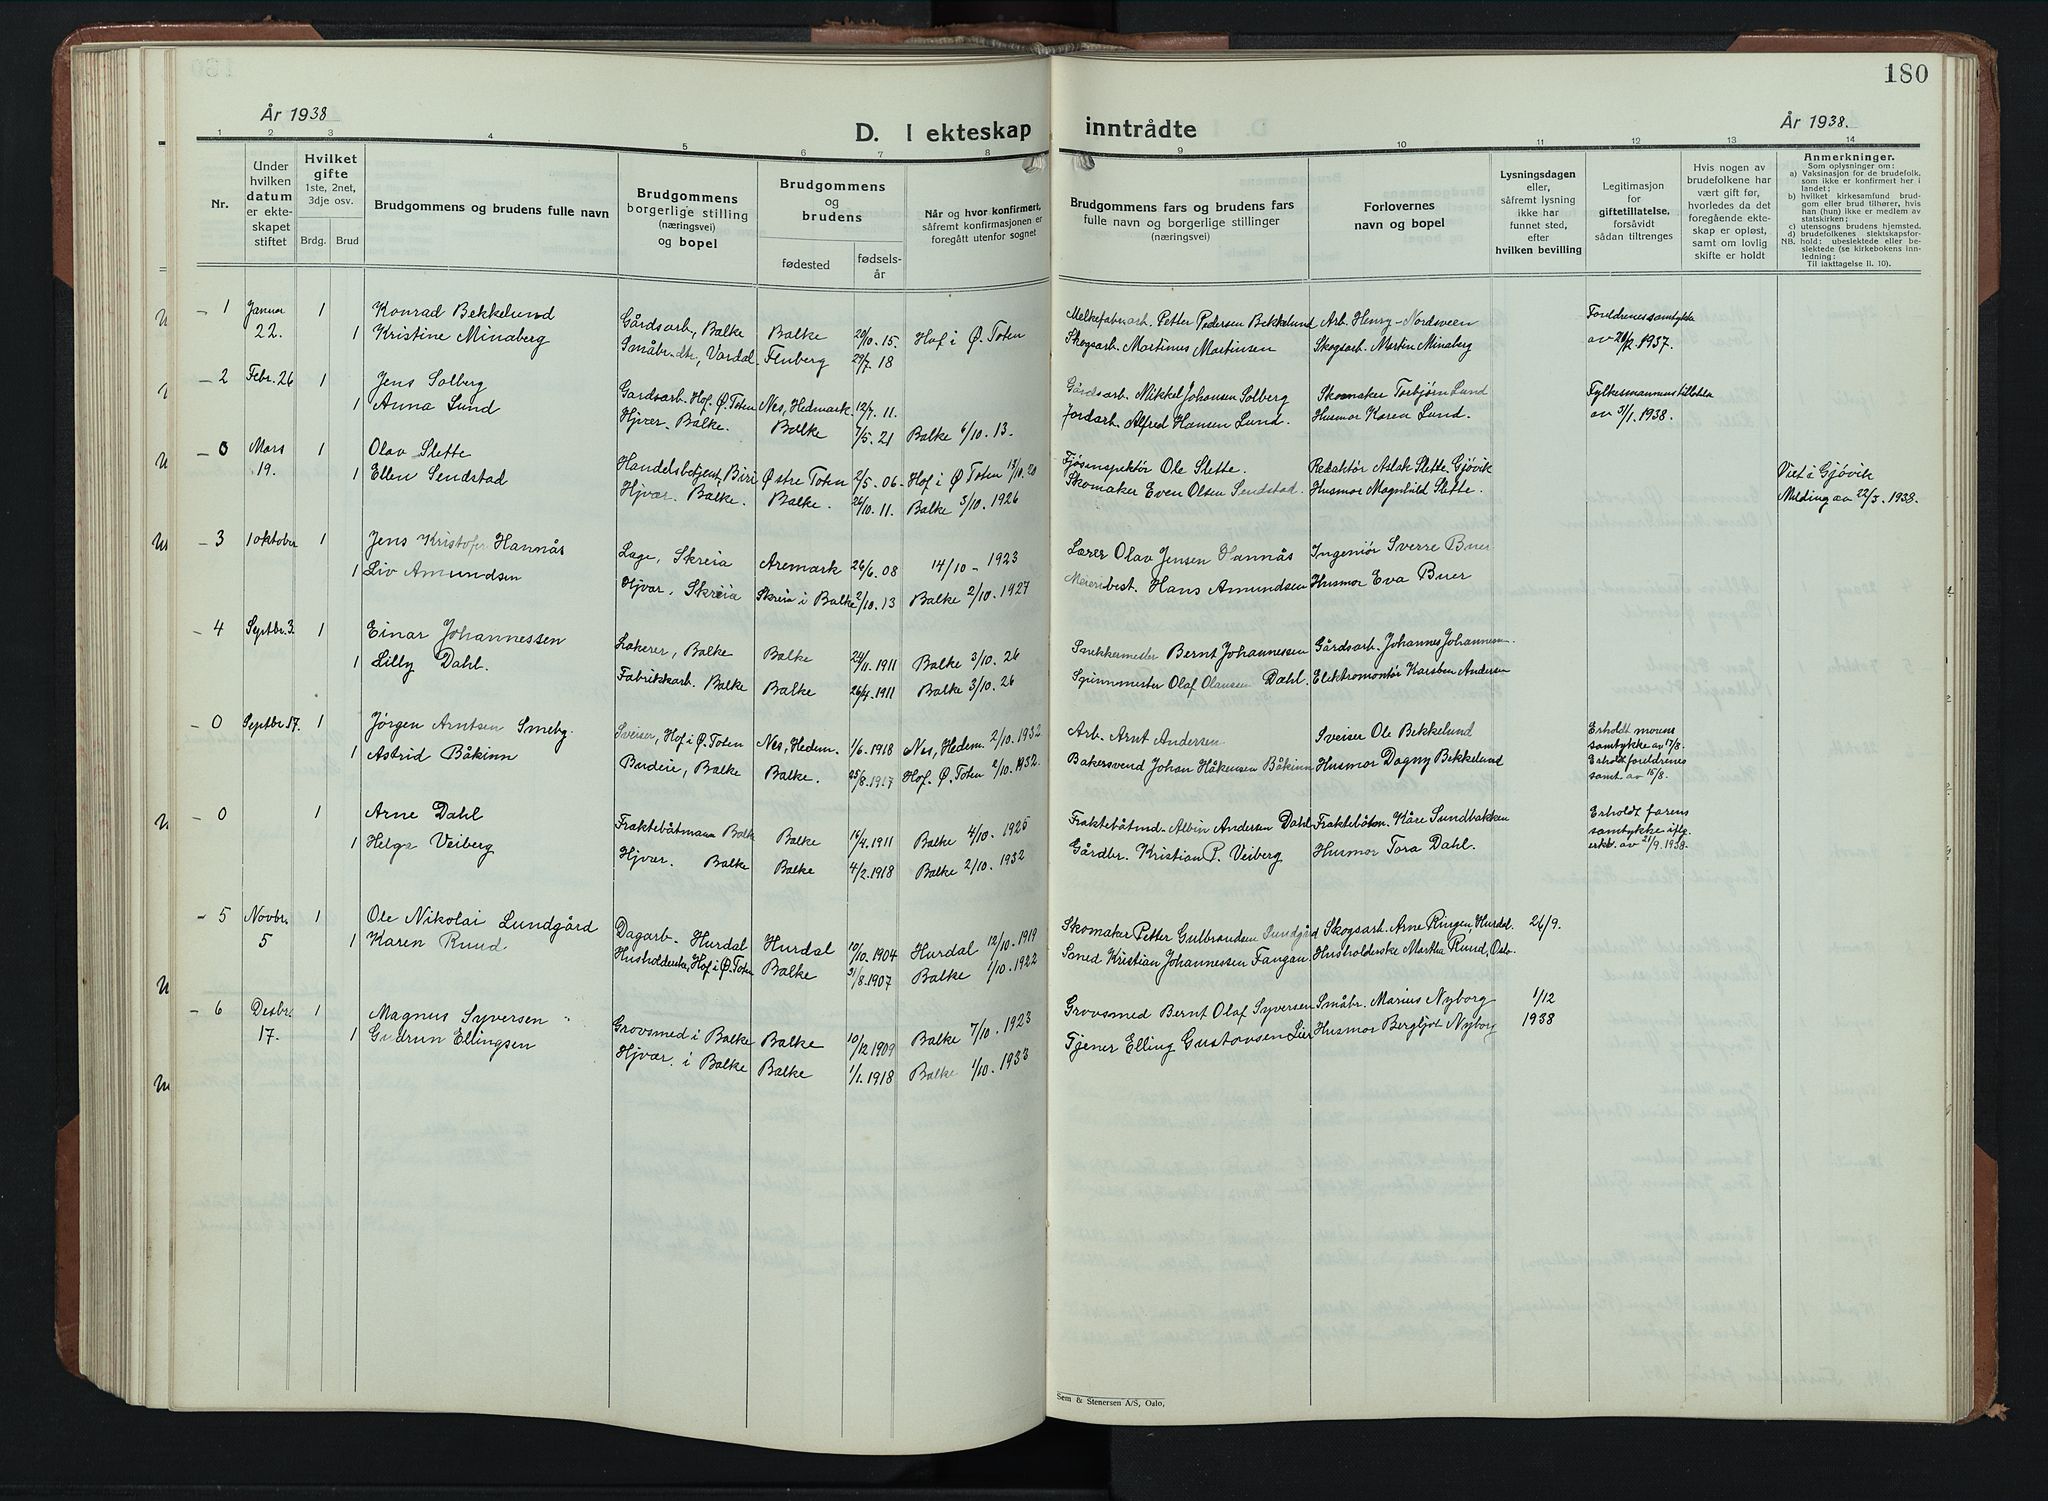 180
År 1938
D. I ekteskap inntrådte
År 1938.
1 2 3 4 5 6 7 8 9 10 11 12 13 14
Nr.
Under hvilken datum er ekteskapet stiftet
Hvilket gifte 1ste, 2net, 3dje osv.
Brdg. Brud
Brudgommens og brudens fulle navn
Brudgommens borgerlige stilling (næringsvei) og bopel
Brudgommens og brudens
fødested
fødselsår
Når og hvor konfirmert, såfremt konfirmasjonen er foregått utenfor sognet
Brudgommens fars og brudens fars fulle navn og borgerlige stillinger (næringsvei)
Forlovernes navn og bopel
Lysningsdagen eller, såfremt lysning ikke har funnet sted, efter hvilken bevilling
Legitimasjon for giftetillatelse, forsåvidt sådan tiltrenges
Hvis nogen av brudefolkene har vært gift før, hvorledes da det foregående ekteskap er opløst, samt om lovlig skifte er holdt
Anmerkninger.
Som oplysninger om:
a) Vaksinasjon for de brudefolk, som ikke er konfirmert her i landet;
b) hvilket kirkesamfund brudgom eller brud tilhører, hvis han (hun) ikke er medlem av statskirken;
c) utensogns brudens hjemsted.
d) brudefolkenes slektskapsforhold: ubeslektede eller beslektede (se kirkebokens innledning:
NB. Til iakttagelse II. 10).
– 1 Januar 22. 1 Konrad Bekkelund Gårdsarb., Balke Balke 20/10. 15. Hof i Ø. Toten Melkefabr.arb. Petter Pedersen Bekkelund Arb. Henry Nordsveen Foreldrenes samtykke
1 Kristine Minaberg Småbr. dtr., Vardal Fluberg 29/7. 18 Skogsarb. Martinus Martinsen Skogsarb. Martin Minaberg 1937.
– 2 Febr. 26 1 Jens Solberg Gardsarb. Hof. Ø. Toten Nes, Hedmark 12/7. 11. Gårdsarb. Mikkel Johansen Solberg Skomaker Torbjørn Lund Fylkesmannens tillatelse
1 Anna Lund Hjvær. Balke. Balke 7/5. 21 Balke 6/10. 13. Jordarb. Alfred Hansen Lund. Husmor Karen Lund. av 31/1. 1938.
– 0 Mars 19. 1 Olav Slette Handelsbetjent, Biri Østre Toten 2/5. 06. Hof i Ø Toten 15/10. 20 Fjøsinspektør Ole Slette. Redaktør Aslak Slette. Gjøvik Viet i Gjøvik
1 Ellen Sendstad Hjvær. Balke. Balke. 26/10. 11. Balke 3/10. 1926 Skomaker Even Olsen Sendstad. Husmor Magnhild Slette. Melding av 22/3. 1938.
– 3 1 oktober 1 Jens Kristofer Hannås Lege, Skreia Aremark 26/6. 08 14/10 - 1923 Lærer Olav Jensen Hannås Ingeniør Sverre Buer
1 Liv Amundsen Hjvær, Skreia Skreia i Balke 2/10. 13 Balke 2/10. 1927 Meieribest. Hans Amundsen Husmor Eva Buer
– 4 Septbr. 3. 1 Einar Johannessen Lakerer, Balke Balke 24/11. 1911 Balke 3/10. 26 Snekkermester Bernt Johannessen Gårdsarb. Johannes Johannesen.
1 Lilly Dahl. Fabrikkarb. Balke Balke 26/4. 1911 Balke 3/10. 26 Spinnmester Olaf Olausen Dahl. Elektromontør Karsten Andersen
– 0 Septbr. 17. 1 Jørgen Arntsen Smeby. Sveiser, Hof i Ø. Toten Nes, Hedem. 1/6. 1918 Nes, Hedem. 2/10. 1932 Arb. Arnt Andersen Sveiser Ole Bekkelund Erholdt morens samtykke av 17/8.
1 Astrid Båkinn Budeie, Balke Balke. 25/8. 1917 Hof. Ø. Toten 2/10. 1932. Bakersvend Johan Håkensen Båkinn Husmor Dagny Bekkelund Erholdt foreldrenes samt. av 15/8.
– 0 1 Arne Dahl Fraktebåtmann Balke Balke 14/4. 1911 Balke 4/10. 1925 Fraktebåtmd. Albin Andersen Dahl Fraktebåtm. Kåre Sundbakken Erholdt farens samtykke iflg.
1 Helga Veiberg Hjvær. Balke Balke 4/2. 1918 Balke 2/10. 1932 Gårdbr. Kristian P. Veiberg Husmor Tora Dahl. erkl. av 21/9. 1938.
– 5 Novbr. 5 1 Ole Nikolai Lundgård Dagarb. Hurdal Hurdal 10/10. 1904 Hurdal 12/10. 1919 Skomaker Petter Gulbrandsen Lundgård Skogsarb. Arne Ringen, Hurdal. 26/9.
1 Karen Ruud Husholderske, Hof i Ø. Toten Balke 31/8. 1907 Balke 1/10. 1922 Smed Kristian Johannessen Fangan Husholderske Martha Ruud, Oslo.
– 6 Desbr. 17. 1 Magnus Syversen Grovsmed i Balke Balke 10/12 1909 Balke 7/10. 1923 Grovsmed Bernt Olaf Syversen Småbr. Marius Nyborg 1/12
1 Gudrun Ellingsen Hjvær. i Balke Balke 1/1. 1918 Balke 1/10. 1933 Tjener Elling Gustavsen Lier Husmor Bergljot Nyborg 1938
Sem & Stenersen A/S, Oslo.